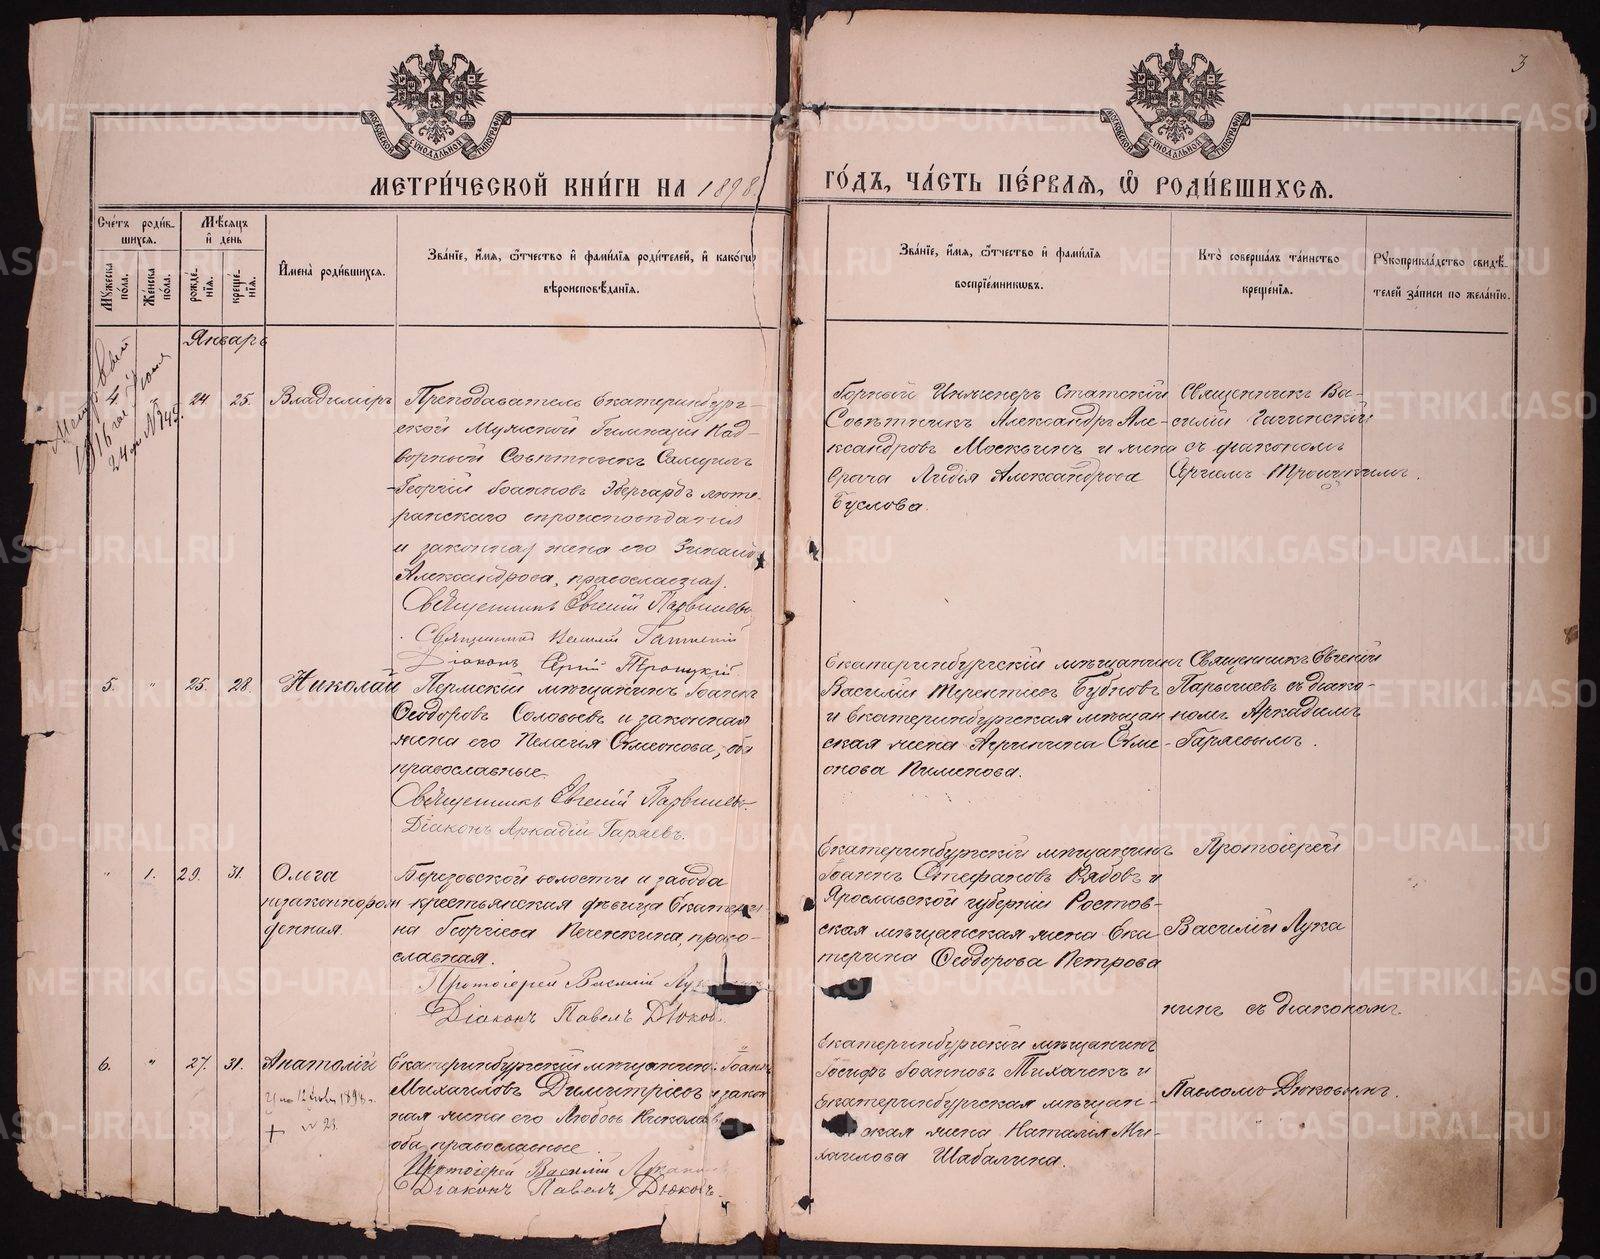 3
МОСКОВСКОЙ СѴНОДАЛЬНОЙ ТИПОГРАФІИ
МОСКОВСКОЙ СѴНОДАЛЬНОЙ ТИПОГРАФІИ
МЕТРИ́ЧЕСКОЙ КНИ́ГИ НА 1898 ГО́ДЪ, ЧА́СТЬ ПЕ́РВАЯ, Ѡ҆ РОДИ́ВШИХСЯ.
Сче́тъ роди́в-
шихся.
Мꙋжеска по́ла.
Же́нска по́ла.
Мѣ́сяцъ
и҆ де́нь
рожде́-
нїя.
креще́-
нїя.
И҆мена̀ роди́вшихся.
Зва́нїе, и҆́мя, ѻ҆́тчество и҆ фами́лїя роди́телей, и҆ како́гѡ
вѣроисповѣ́данїя.
Зва́нїе, и҆́мя, ѻ҆́тчество и҆ фами́лїя
воспрїе́мникѡвъ.
Кто̀ соверша́лъ та́инство
креще́нїя.
Рꙋкоприкла́дство свидѣ́-
телей за́писи по жела́нїю.
Январь
4
24 25. Владиміръ
Преподаватель Екатеринбург-
ской Мужской Гимназіи Над-
ворный Совѣтникъ Самуилъ
-Георгій Іоанновъ Эбергардъ люте-
ранскаго вѣроисповѣданія
и законная жена его Зинаида
Александрова, православная.
Священникъ Евгеній Парышевъ
Священникъ Василій
Діаконъ Сергій Троицкій
Горный Инженеръ Статскій
Совѣтникъ Александръ Але-
ксандровъ Москвинъ и жена
врача Лидія Александрова
Буслова.
Священникъ Ва-
силій
съ діакономъ
Сергіемъ Троицкимъ.
5. " 25. 28. Николай
Пермскій мѣщанинъ Іоаннъ
Ѳеодоровъ Соловьевъ и законная
жена его Пелагія Симеонова, оба
православные.
Священникъ Евгеній Парышевъ.
Діаконъ Аркадій Гаряевъ.
Екатеринбургскій мѣщанинъ
Василій Терентьевъ Бубновъ
и Екатеринбургская мѣщан-
ская жена Агрипина Симе-
онова Пименова.
Священникъ Евгеній
Парышевъ съ діако-
номъ Аркадіемъ
Гаряевымъ.
" 1. 29. 31. Ольга
незаконнорож-
денная.
Березовской волости и завода
крестьянская дѣвица Екатери-
на Георгіева Печенкина, право-
славная.
Протоіерей Василій
Діаконъ Павелъ Дюковъ.
Екатеринбургскій мѣщанинъ
Іоаннъ Стефановъ Рядовъ и
Ярославской губерніи Ростов-
ская мѣщанская жена Ека
терина Ѳеодорова Петрова
Протоіерей
Василій Лука
нинъ съ діакономъ
Павломъ Дюковымъ.
6. " 27. 31. Анатолій
1898 г.
№ 23.
Екатеринбургскій мѣщанинъ Іоаннъ
Михаиловъ Димитріевъ и закон
ная жена его Любовь Николаева
оба православные.
Протоіерей Василій Луканинъ
Діаконъ Павелъ Дюковъ.
Екатеринбургскій мѣщанинъ
Іосифъ Іоанновъ Тихачекъ и
Екатеринбургская мѣщан-
ская жена Наталія Ми-
хаилова Шабалина.
METRIKI.GASO-URAL.RU